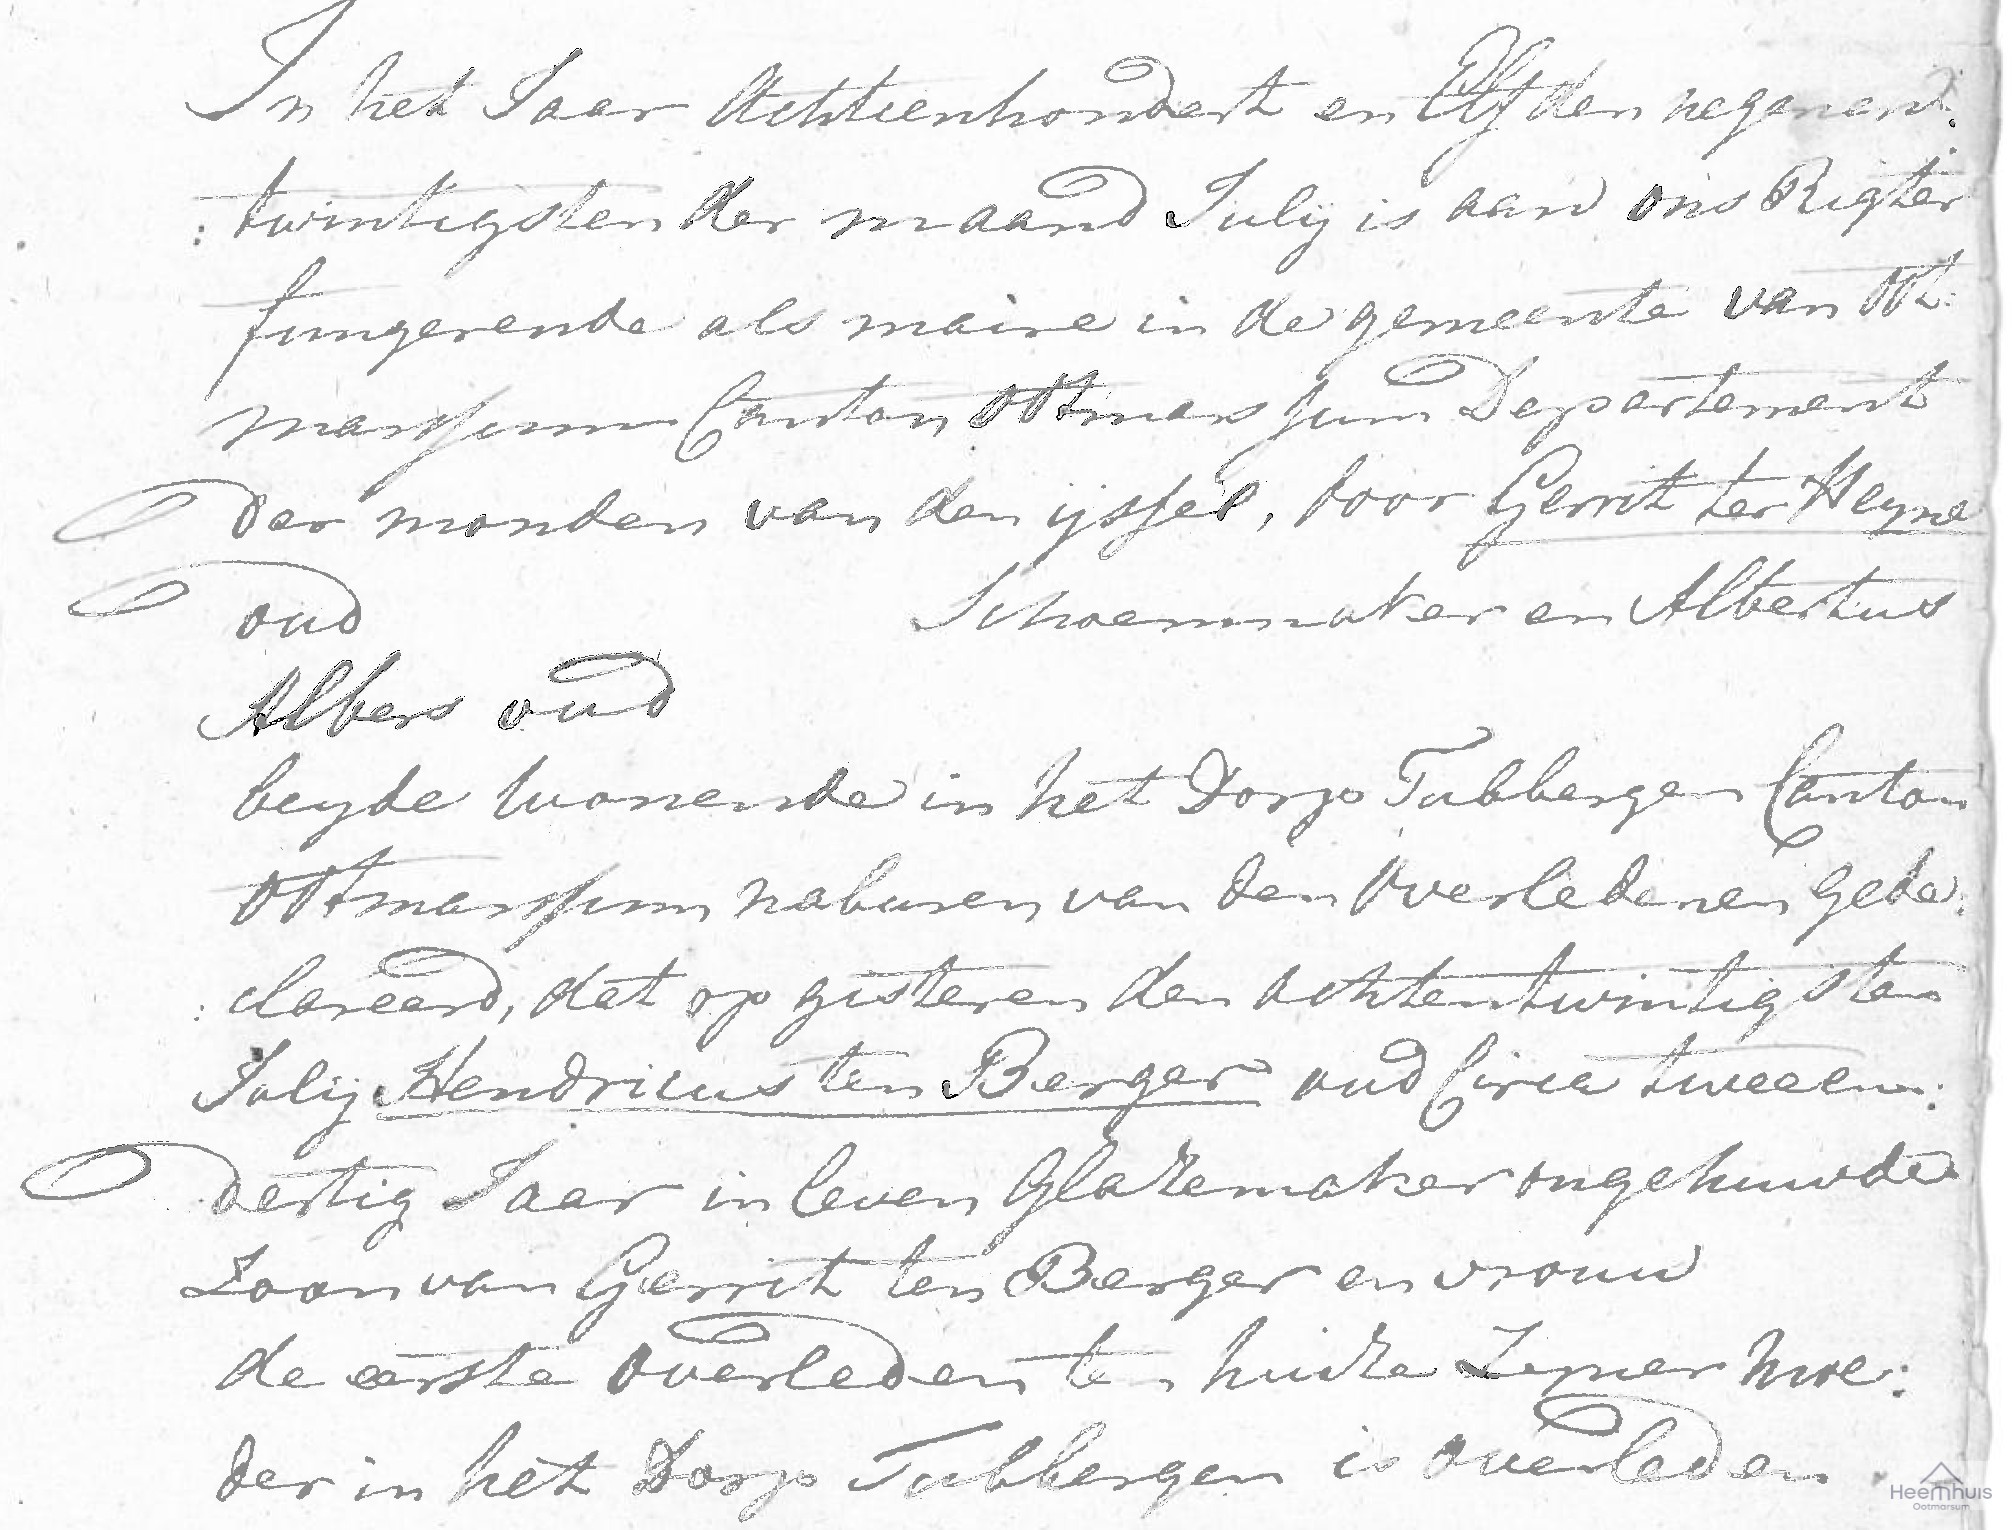 In het Jaar Achttienhondert en Elf den negenen:
: twintigsten der maand Julij is aan ons Rigter
fungerende als maire in de gemeente van Oot:
marssum Canton Ootmarssum Departement
der monden van den ijssel, door Gerrit ter Heyne
oud Schoenmaker en Albertus
Albers oud
beyde wonende in het Dorp Tubbergen Canton
Ootmarssum naburen van den Overledenen gede:
: clareerd, dat op gisteren den achtentwintigsten
Julij Hendricus ten Berger oud Circa tweeen:
dertig Jaar in leven Glazemaker ongehuwde
Zoon van Gerrit ten Berger en vrouw
de eerste overleden ten huize Zyner moe:
der in het Dorp Tubbergen is overleden
Heemhuis
Ootmarsum